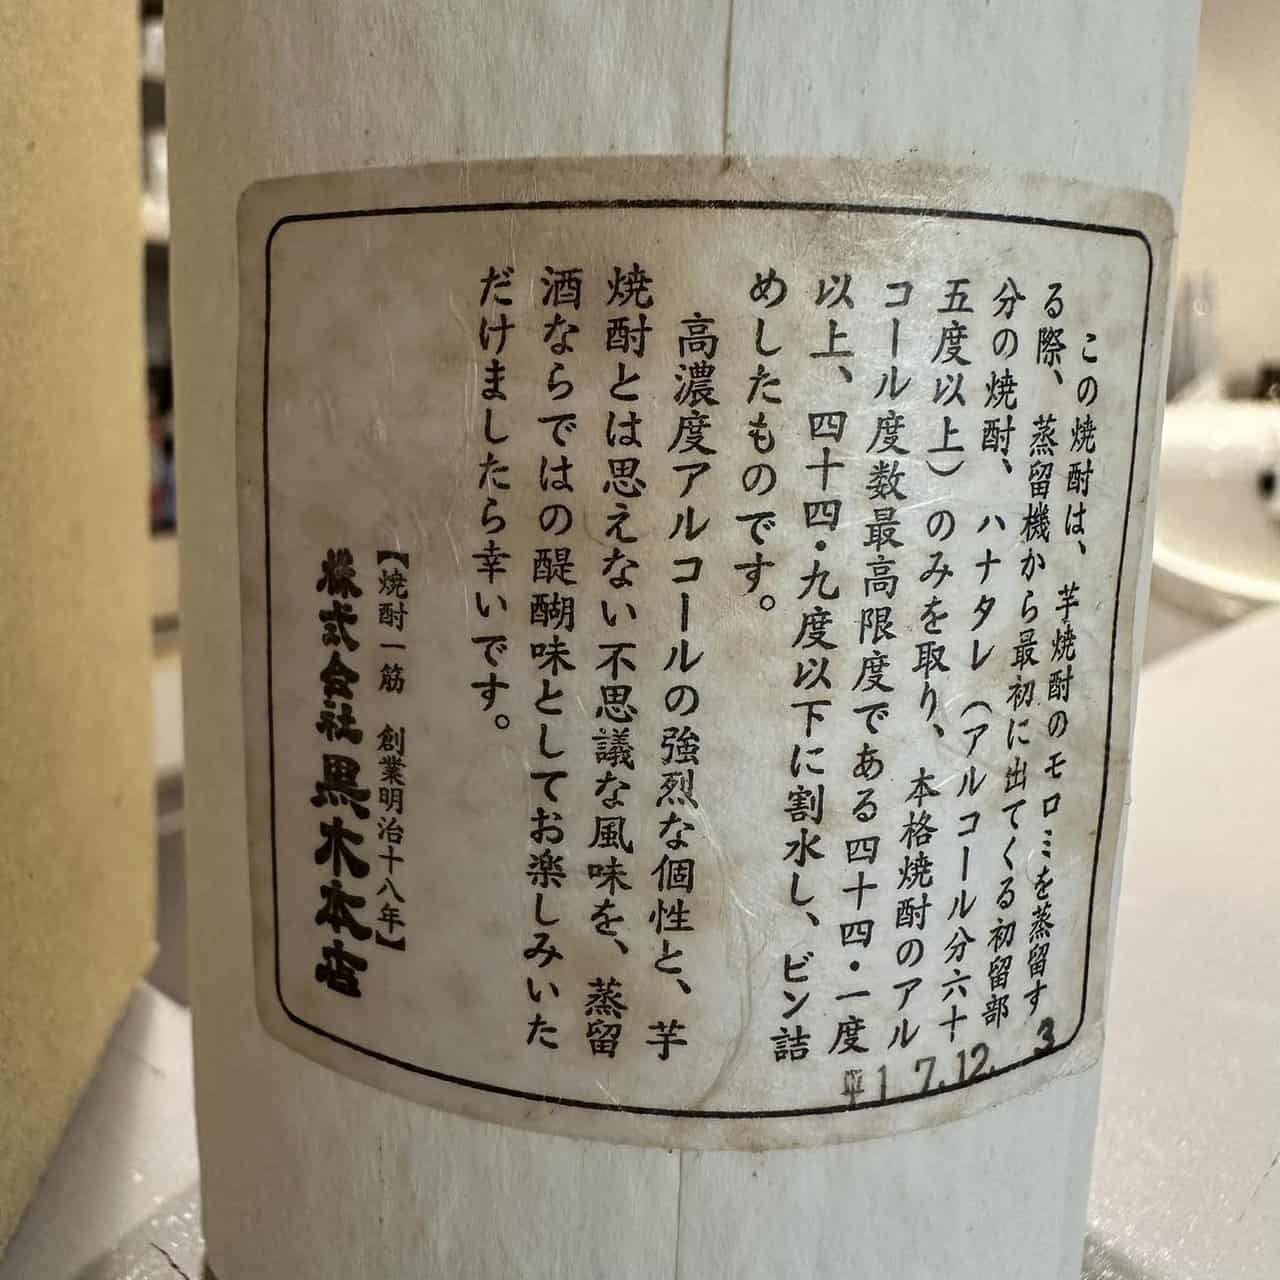 この焼酎は、芋焼酎のモロミを蒸留す
る際、蒸留機から最初に出てくる初留部
分の焼酎、ハナタレ（アルコール分六十
五度以上）のみを取り、本格焼酎のアル
コール度数最高限度である四十四・一度
以上、四十四・九度以下に割水し、ビン詰
めしたものです。
高濃度アルコールの強烈な個性と、芋
焼酎とは思えない不思議な風味を、蒸留
酒ならではの醍醐味としてお楽しみいた
だけましたら幸いです。
【焼酎一筋 創業明治十八年】
株式会社黒木本店
平17.12.3